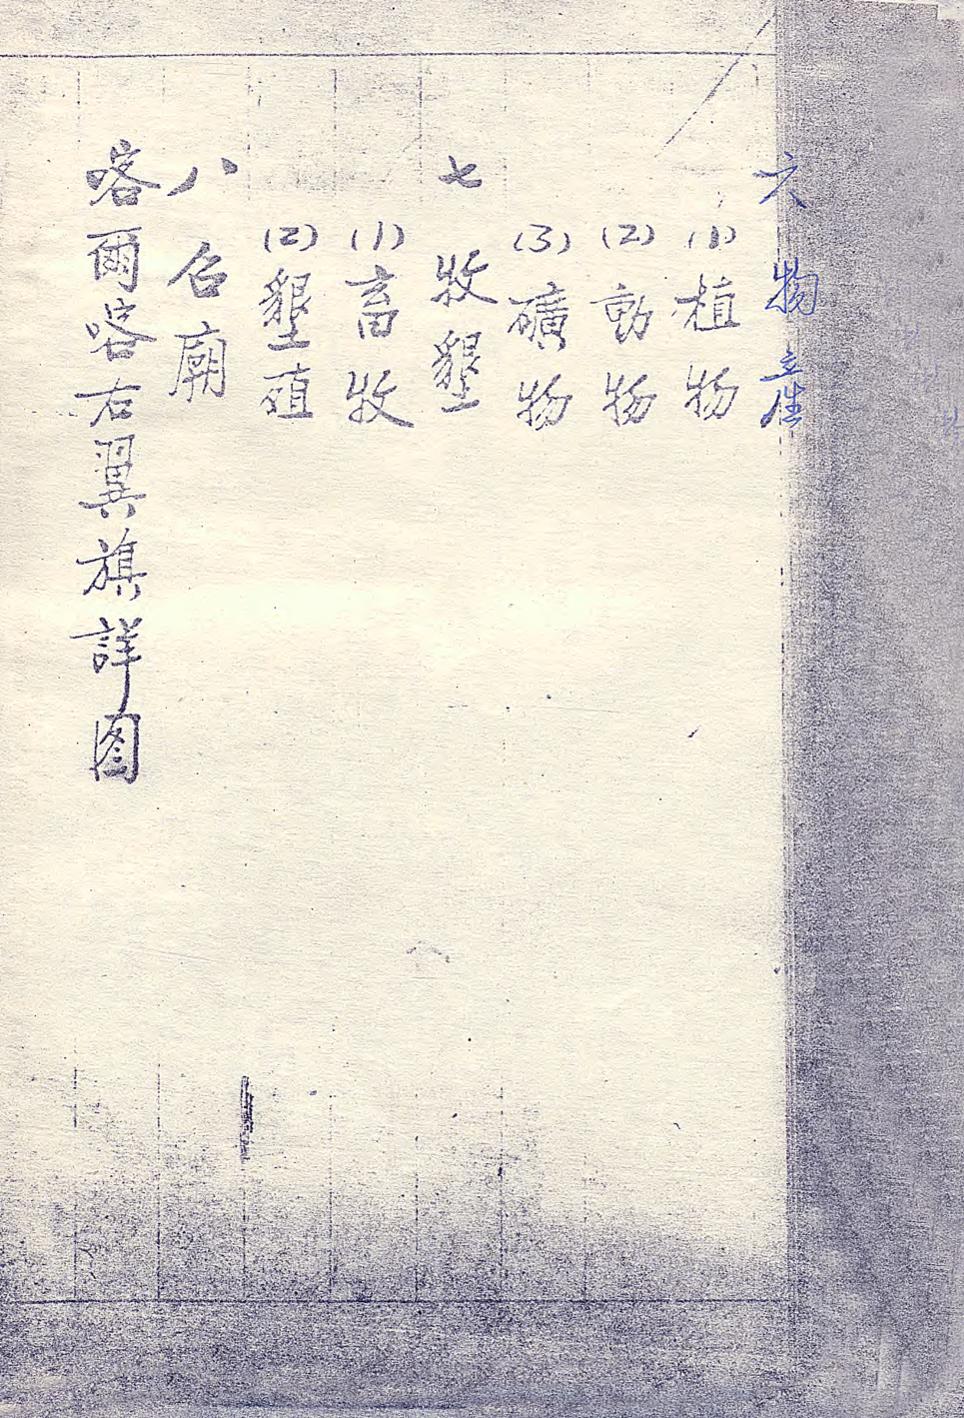 六 物產
(1)植物
(2)動物
(3)礦物
七 牧墾
(1)畜牧
(2)墾殖
八 召廟
喀爾喀右翼旗詳图